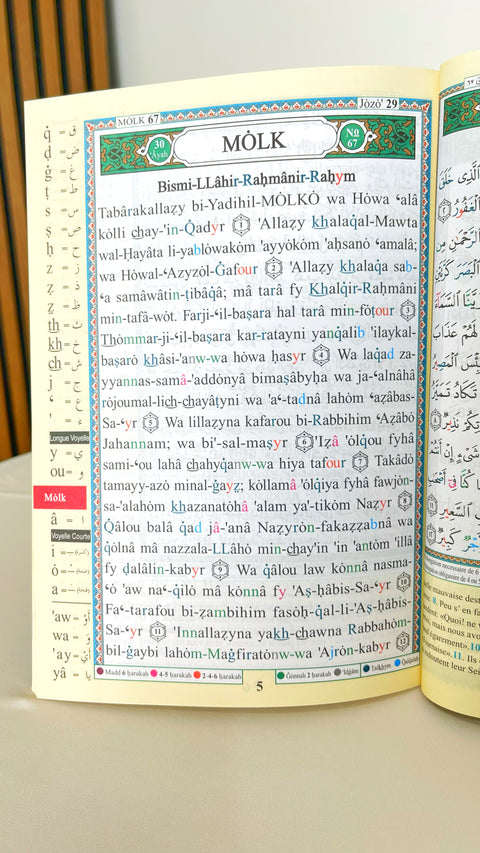 MÒLK 67
Jòzò' 29
30 Âyah
MÒLK
No 67
Bismi-LLâhir-Raḥmânir-Raḥym
Tabârakallaẓy bi-Yadihil-MÒLKÒ wa Hòwa ʿalâ
kòlli chay-'in-Q̇adyr ① 'Allaẓy khalaq̇al-Mawta
wal-Ḥayâta li-yablòwakòm 'ayyòkòm 'aḥsanò ʿamalâ;
wa Hòwal-ʿAzyzòl-Ġafour ② 'Allaẓy khalaq̇a sab-
ʿa samâwâtin-ṭibâq̇â; mâ tarâ fy Khalq̇ir-Raḥmâni
min-tafâ-wòt. Farji-ʿil-baṣara hal tarâ min-fòṭour ③
Thòmmar-ji-ʿil-baṣara kar-ratayni yanq̇alib 'ilaykal-
baṣarò khâsi-'anw-wa hòwa ḥasyr ④ Wa laq̇ad za-
yyannas-samâ-'addònyâ bimaṣâbyḥa wa ja-ʿalnâhâ
ròjoumal-lich-chayâṭyni wa 'aʿ-tadnâ lahòm ʿaẓâbas-
Sa-ʿyr ⑤ Wa lillaẓyna kafarou bi-Rabbihim ʿAẓâbò
Jahannam; wa bi'-sal-maṣyr ⑥ 'Iẓâ 'òlq̇ou fyhâ
samiʿou lahâ chahyq̇anw-wa hiya tafour ⑦ Takâdò
tamayy-azò minal-ġayẓ; kòllamâ 'òlq̇iya fyhâ fawjòn-
sa-'alahòm khazanatòhâ 'alam ya'-tikòm Naẓyr ⑧
Q̇âlou balâ q̇ad jâ-'anâ Naẓyròn-fakaẓẓabnâ wa
q̇òlnâ mâ nazzala-LLâhò min-chay-'in 'in 'antòm 'illâ
fy ḍalâlin-kabyr ⑨ Wa q̇âlou law kònnâ nasma-
ʿò 'aw naʿ-q̇ilò mâ kònnâ fy 'Aṣ-ḥâbis-Sa-ʿyr ⑩
Faʿ-tarafou bi-ẓambihim fasòḥ-q̇al-li-'Aṣ-ḥâbis-
Sa-ʿyr ⑪ 'Innallaẓyna yakh-chawna Rabbahòm-
bil-ġaybi lahòm-Maġfiratònw-wa 'Ajròn-kabyr ⑫
q̇ = ق
ḍ = ض
ġ = غ
ṭ = ط
s = س
ṣ = ص
ḥ = ح
z = ز
ẓ = ذ
ẓ = ظ
th = ث
kh = خ
ch = ش
j = ج
ʿ = ع
' = ء
Longue Voyelle
y = ي
ou = و
Mòlk
â = ا
Voyelle Courte
i =
ò =
a =
'aw = أَوْ
wa = وَ
'ay = أَيْ
yâ = يا
Madd 6 ḥarakah 4-5 ḥarakah 2-4-6 ḥarakah Ġonnah 2 ḥarakah 'Idġâm Tafkhym Q̇alq̇alah
5
ٱلَّذِى خَلَقَ